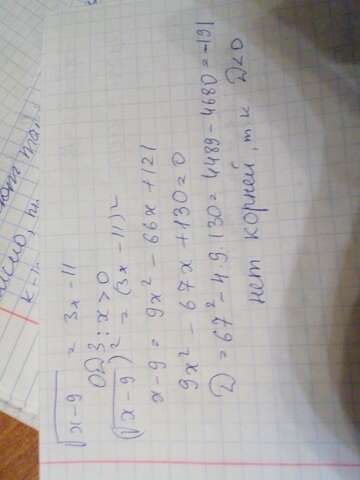 √x-9 = 3x-11
ОДЗ: x>0
(√x-9)² = (3x-11)²
x-9 = 9x² - 66x + 121
9x² - 67x + 130 = 0
D = 67² - 4·9·130 = 4489 - 4680 = -191
нет корней, т к D<0